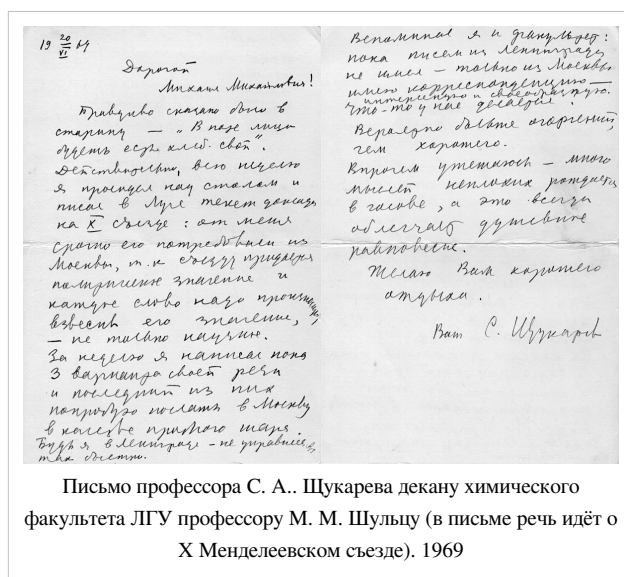 19 20/VI 69
Дорогой
Михаил Михайлович!
Правдиво сказано было в
старину — „В поте лица
будешь есть хлеб свой".
Действительно, всю неделю
я просидел над столом и
писал в Луге текст доклада
на X съезде: от меня
срочно его потребовали из
Москвы, т.к. съезду придается
политическое значение и
каждое слово надо
взвесить его значение,
— не только научно.
За неделю я написал пока
3 варианта своей речи
и последний из них
попробую послать в Москву
в качестве пробного шара.
Будь я в Ленинграде — не управился б
так быстро.
Вспоминал я и факультет:
пока писем из Ленинграда
не имел — только из Москвы
имею корреспонденцию —
интересную и своеобразную.
Что-то у нас делается?
Вероятно больше огорчений,
чем хорошего.
Впрочем утешаюсь — много
мыслей неплохих рождается
в голове, а это всегда
облегчает душевное
равновесие.
Желаю Вам хорошего
отдыха.
Ваш С. Щукарев
Письмо профессора С. А.. Щукарева декану химического
факультета ЛГУ профессору М. М. Шульцу (в письме речь идёт о
X Менделеевском съезде). 1969